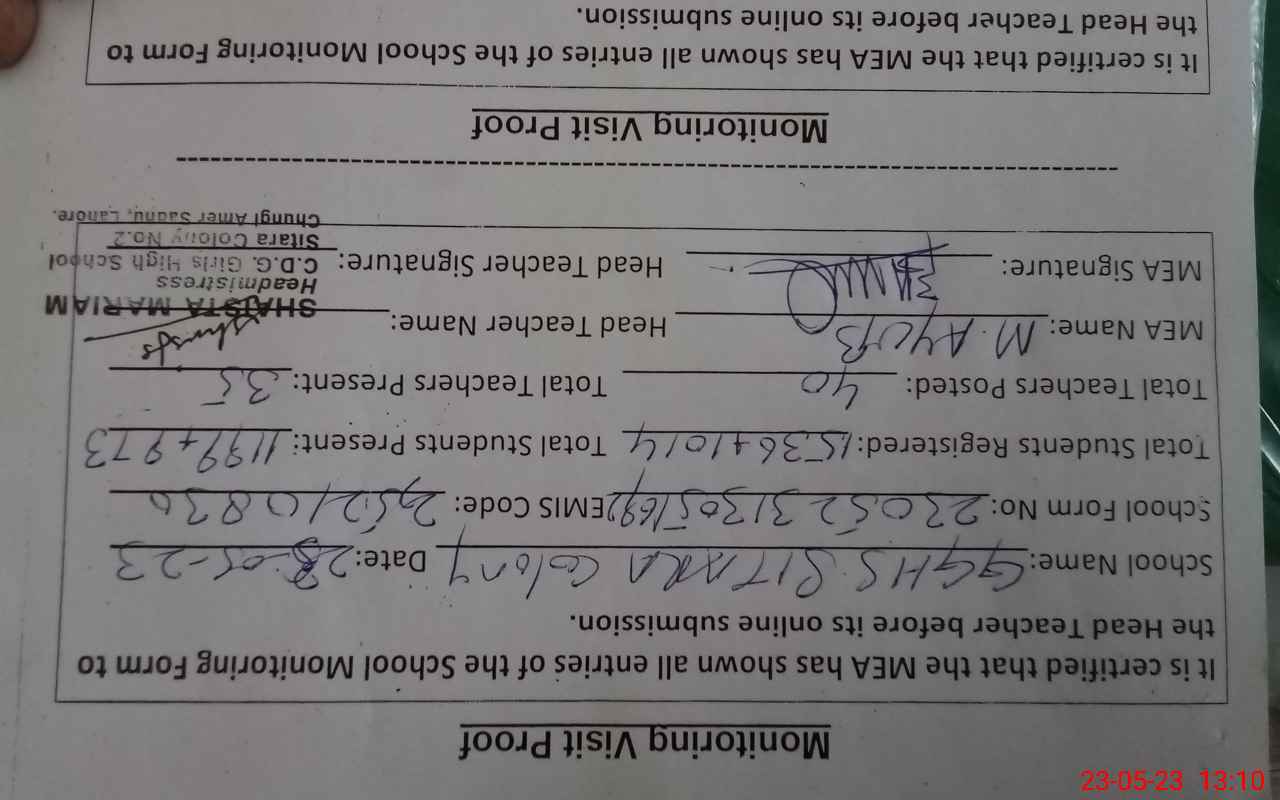 Monitoring Visit Proof
It is certified that the MEA has shown all entries of the School Monitoring Form to
the Head Teacher before its online submission.
School Name: GGHS SITARA Colony Date: -05-23
School Form No: EMIS Code: 35210830
Total Students Registered: 1536+1014 Total Students Present: 1199+973
Total Teachers Posted: 40 Total Teachers Present: 35
MEA Name: M. AYUB Head Teacher Name:
MEA Signature: Head Teacher Signature:
SHAISTA MARIAM
Headmistress
C.D.G. Girls High School
Sitara Colony No.2
Chungi Amer Sadhu, Lahore.
Monitoring Visit Proof
It is certified that the MEA has shown all entries of the School Monitoring Form to
the Head Teacher before its online submission.
23-05-23 13:10